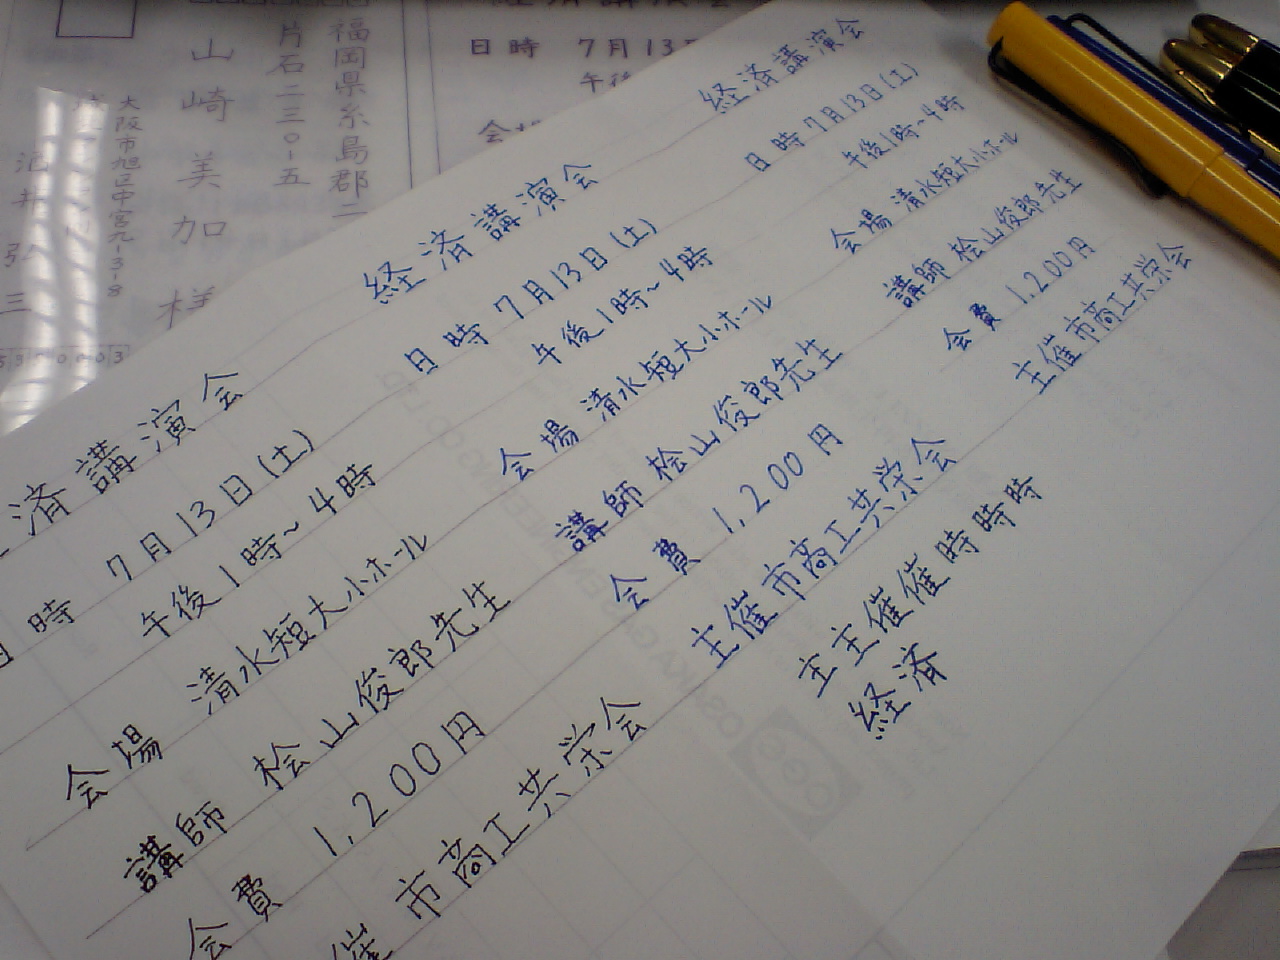 日時 7月13
午後
福岡県糸島郡二
片石二三〇-五
山崎美加様
大阪市旭区中宮九-3-8
酒井弘三
済講演会
日時 7月13日(土)
午後1時~4時
会場 清水短大小ホール
講師 桧山俊郎先生
会費 1,200円
催 市商工共栄会
経済講演会
日時 7月13日(土)
午後1時~4時
会場 清水短大小ホール
講師 桧山俊郎先生
会費 1,200円
主催 市商工共栄会
主主催催時時時
経済
経済講演会
日時 7月13日(土)
午後1時~4時
会場 清水短大小ホール
講師 桧山俊郎先生
会費 1,200円
主催 市商工共栄会